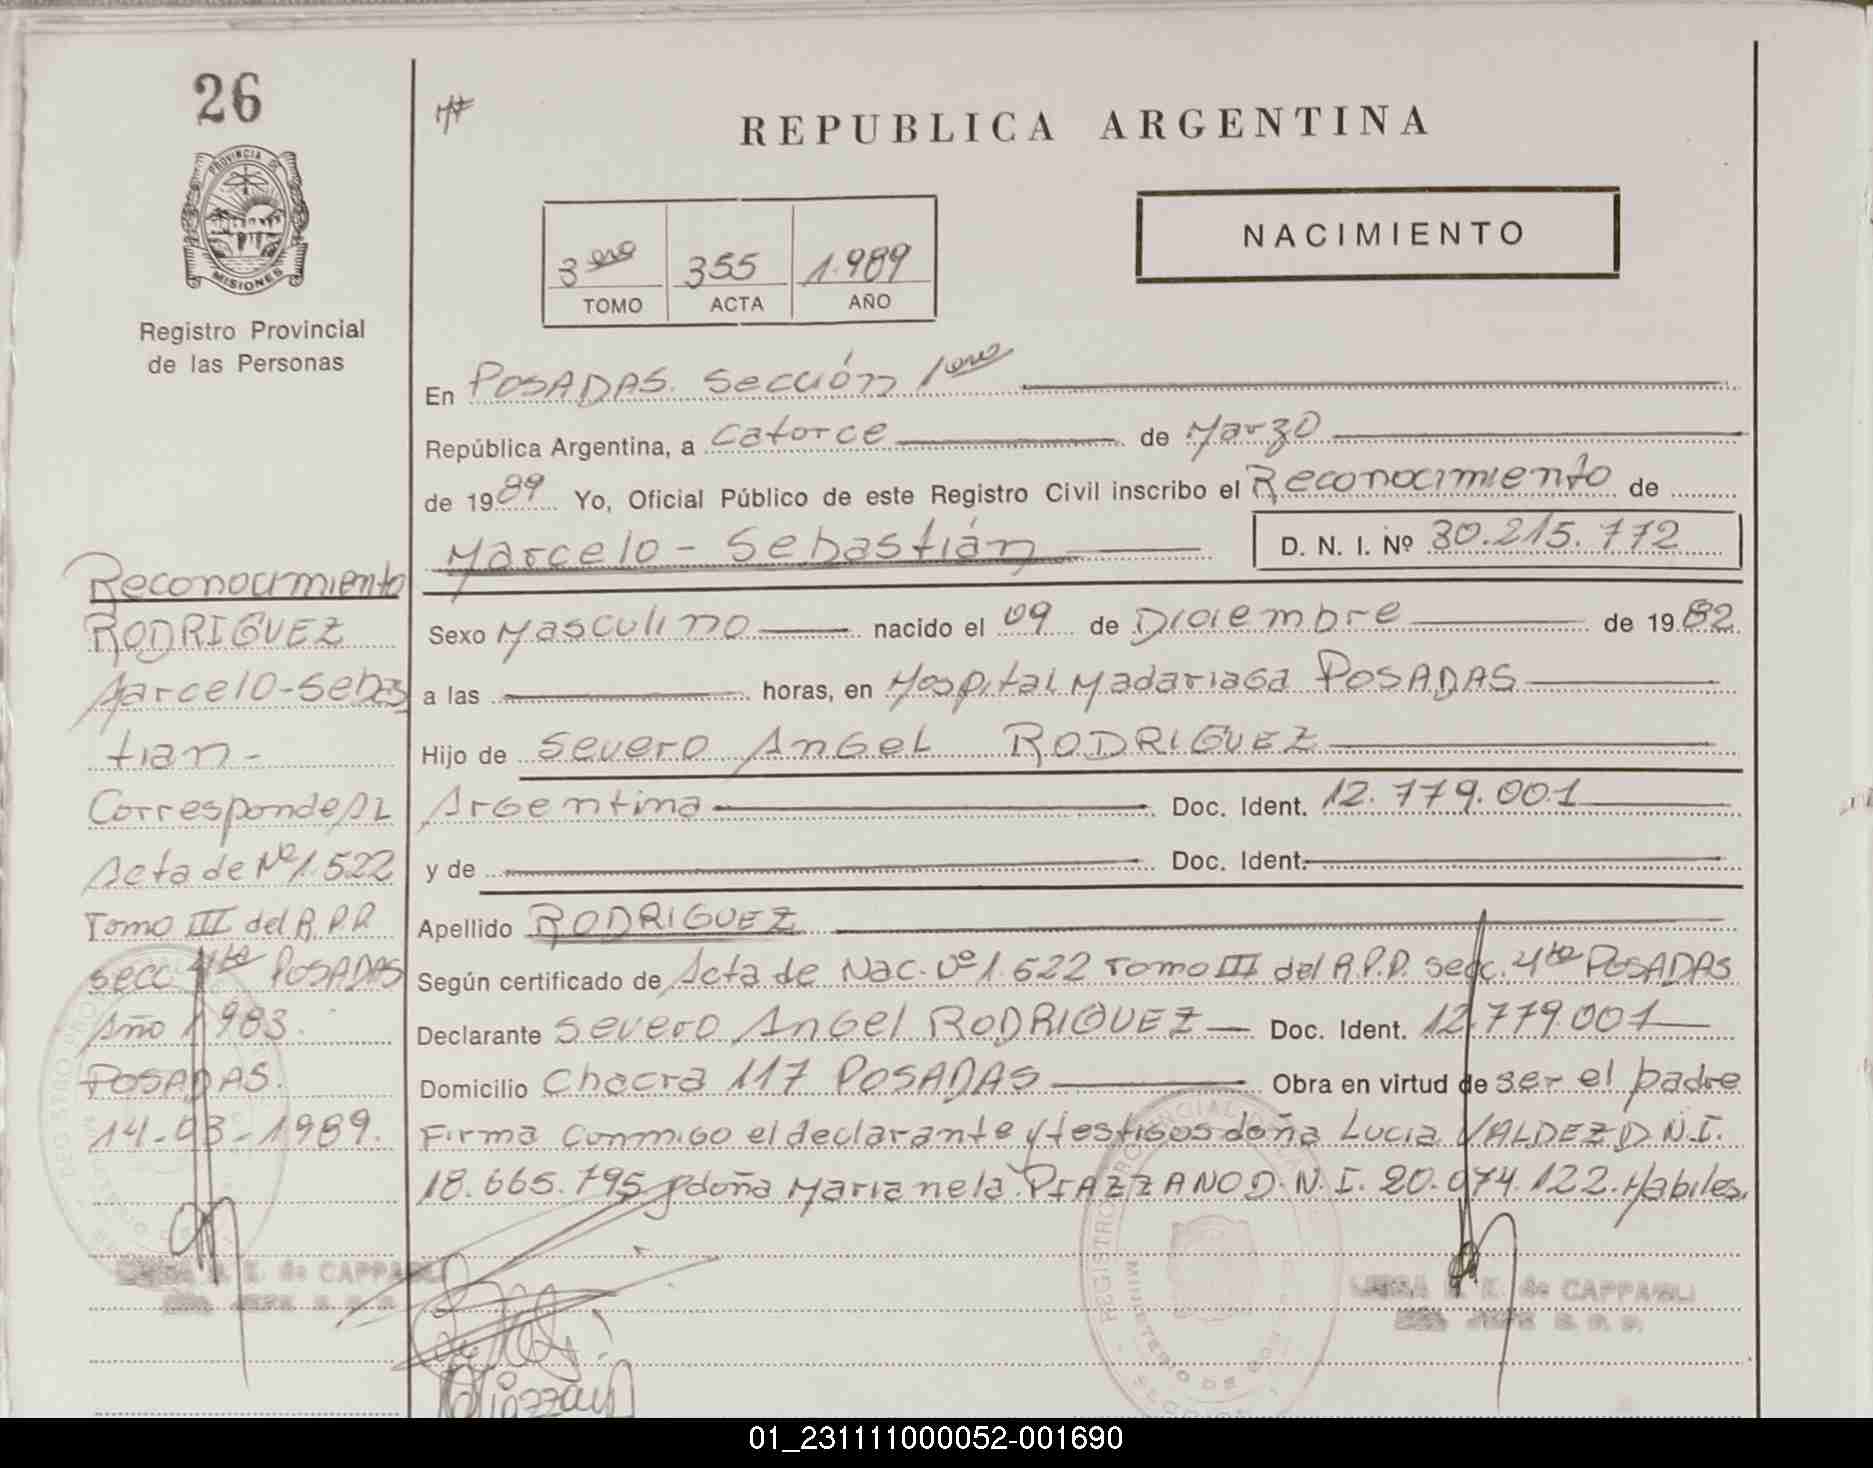 26
REPUBLICA ARGENTINA
PROVINCIA DE
MISIONES
Registro Provincial
de las Personas
3ero 355 1.989
TOMO ACTA AÑO
NACIMIENTO
En POSADAS. Sección 1era
República Argentina, a catorce de Marzo
de 1989 Yo, Oficial Público de este Registro Civil inscribo el Reconocimiento de
Marcelo - Sebastián
D. N. I. Nº 30.215.772
Sexo Masculino nacido el 09 de Diciembre de 1982
a las horas, en Hospital Madariaga POSADAS
Hijo de Severo Angel RODRIGUEZ
Argentina Doc. Ident. 12.779.001
y de Doc. Ident.
Apellido RODRIGUEZ
Según certificado de Acta de Nac. Nº 1.522 Tomo III del R.P.P. secc. 4ta POSADAS
Declarante Severo Angel RODRIGUEZ Doc. Ident. 12.779.001
Domicilio Chacra 117 POSADAS Obra en virtud de ser el padre
Firma conmigo el declarante y testigos doña Lucia VALDEZ D.N.I.
18.665.795 y doña Marianela PIAZZANO D.N.I. 20.074.122. Habiles.
Reconocimiento
RODRIGUEZ
Marcelo-Sebas
tian-
Corresponde AL
Acta de Nº 1.522
Tomo III del R.P.P.
secc 4ta POSADAS
Año 1983.
POSADAS.
14-03-1989.
de CAPPAGLI
de CAPPAGLI
01_231111000052-001690